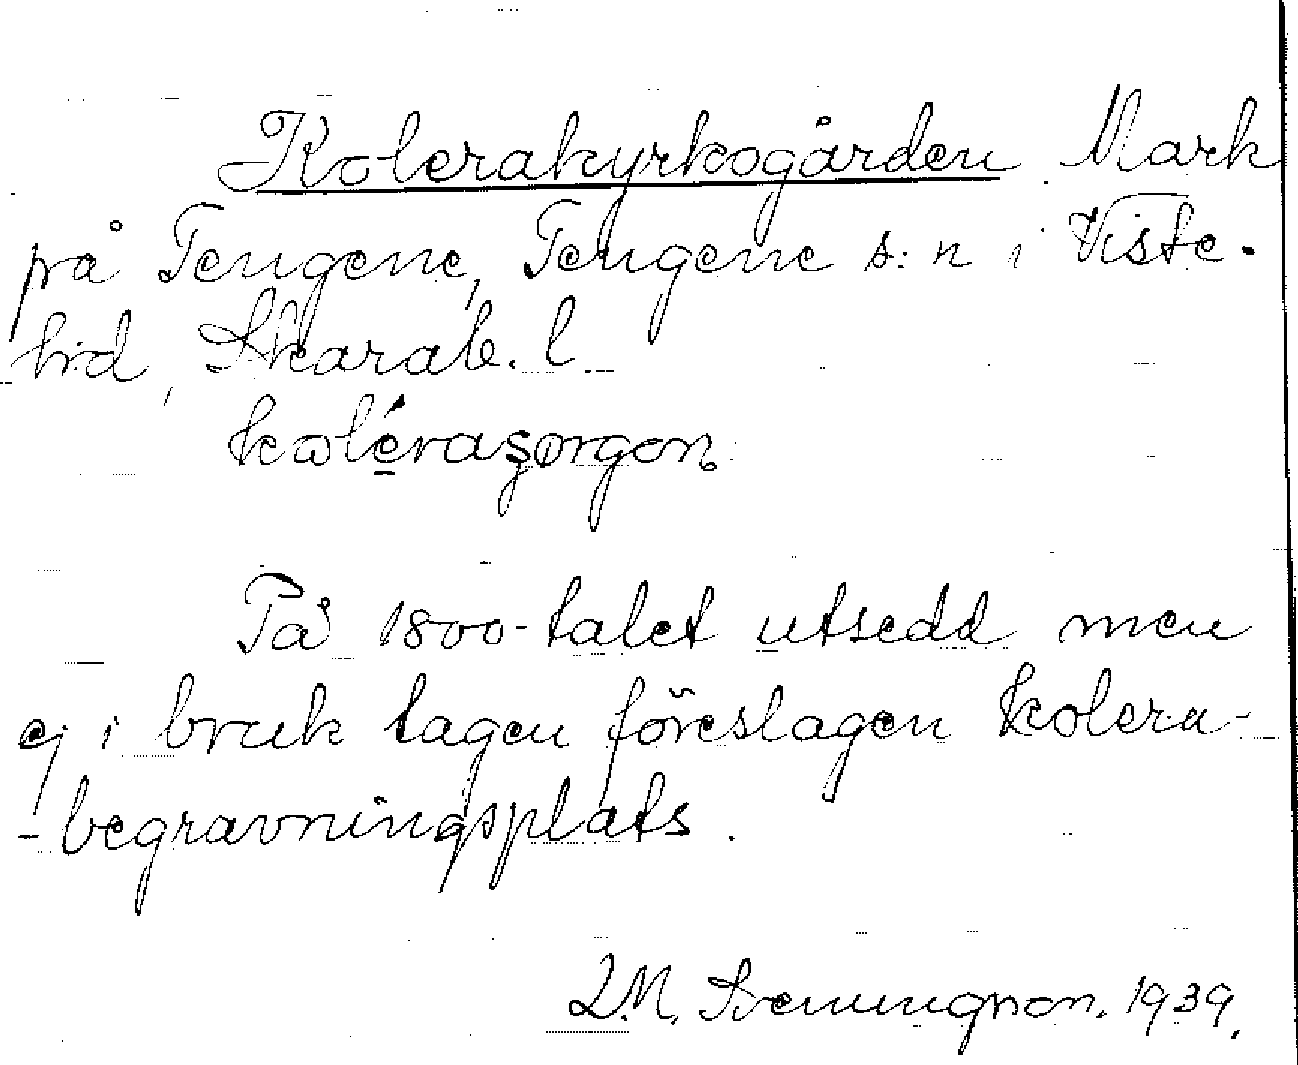 Kolerakyrkogården Mark
på Tengene, Tengene s:n i Viste-
hd, Skarab. l.
koléraşørgon
På 1800-talet utsedd men
ej i bruk tagen föreslagen kolera-
-begravningsplats.
1939.